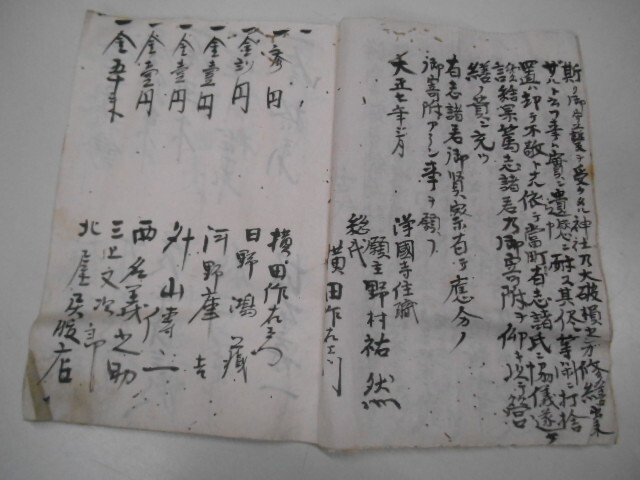 斯ル御守護ヲ受クル神社乃大破損セルガ修繕出来
ザルト云フ事ハ實ニ遺憾ニ耐ス其侭ニ等閑ニ打捨
置ハ却テ不敬ト尤依テ當町有志諸氏ニ協儀遂ケ
該結果篤志諸君乃御寄附ヲ仰キ
繕ノ費ニ充ツ
有志諸君御賢察有テ應分ノ
御寄附アラン事ヲ願フ
大正七年三月
淨國寺住職
願主野村祐然
総代
横田作右エ門
一金 円 横田作右エ門
一金弐円 日野鴻蔵
一金壹円 河野庫吉
一金壹円 外山壽二
一金壹円 西名義之助
一金五十 三上文次郎
北屋呉服店